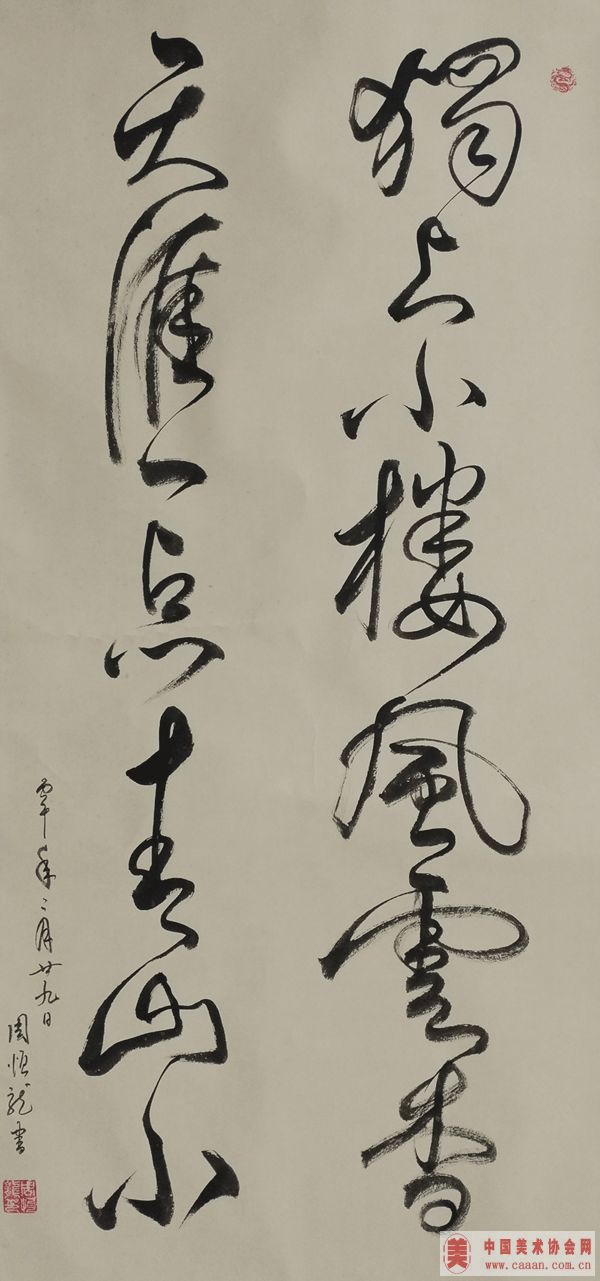 獨上小樓風雲杳
天涯一点青山小
年二月廿九日
周恒龍書
美 中国美术协会网
www.caaan.com.cn